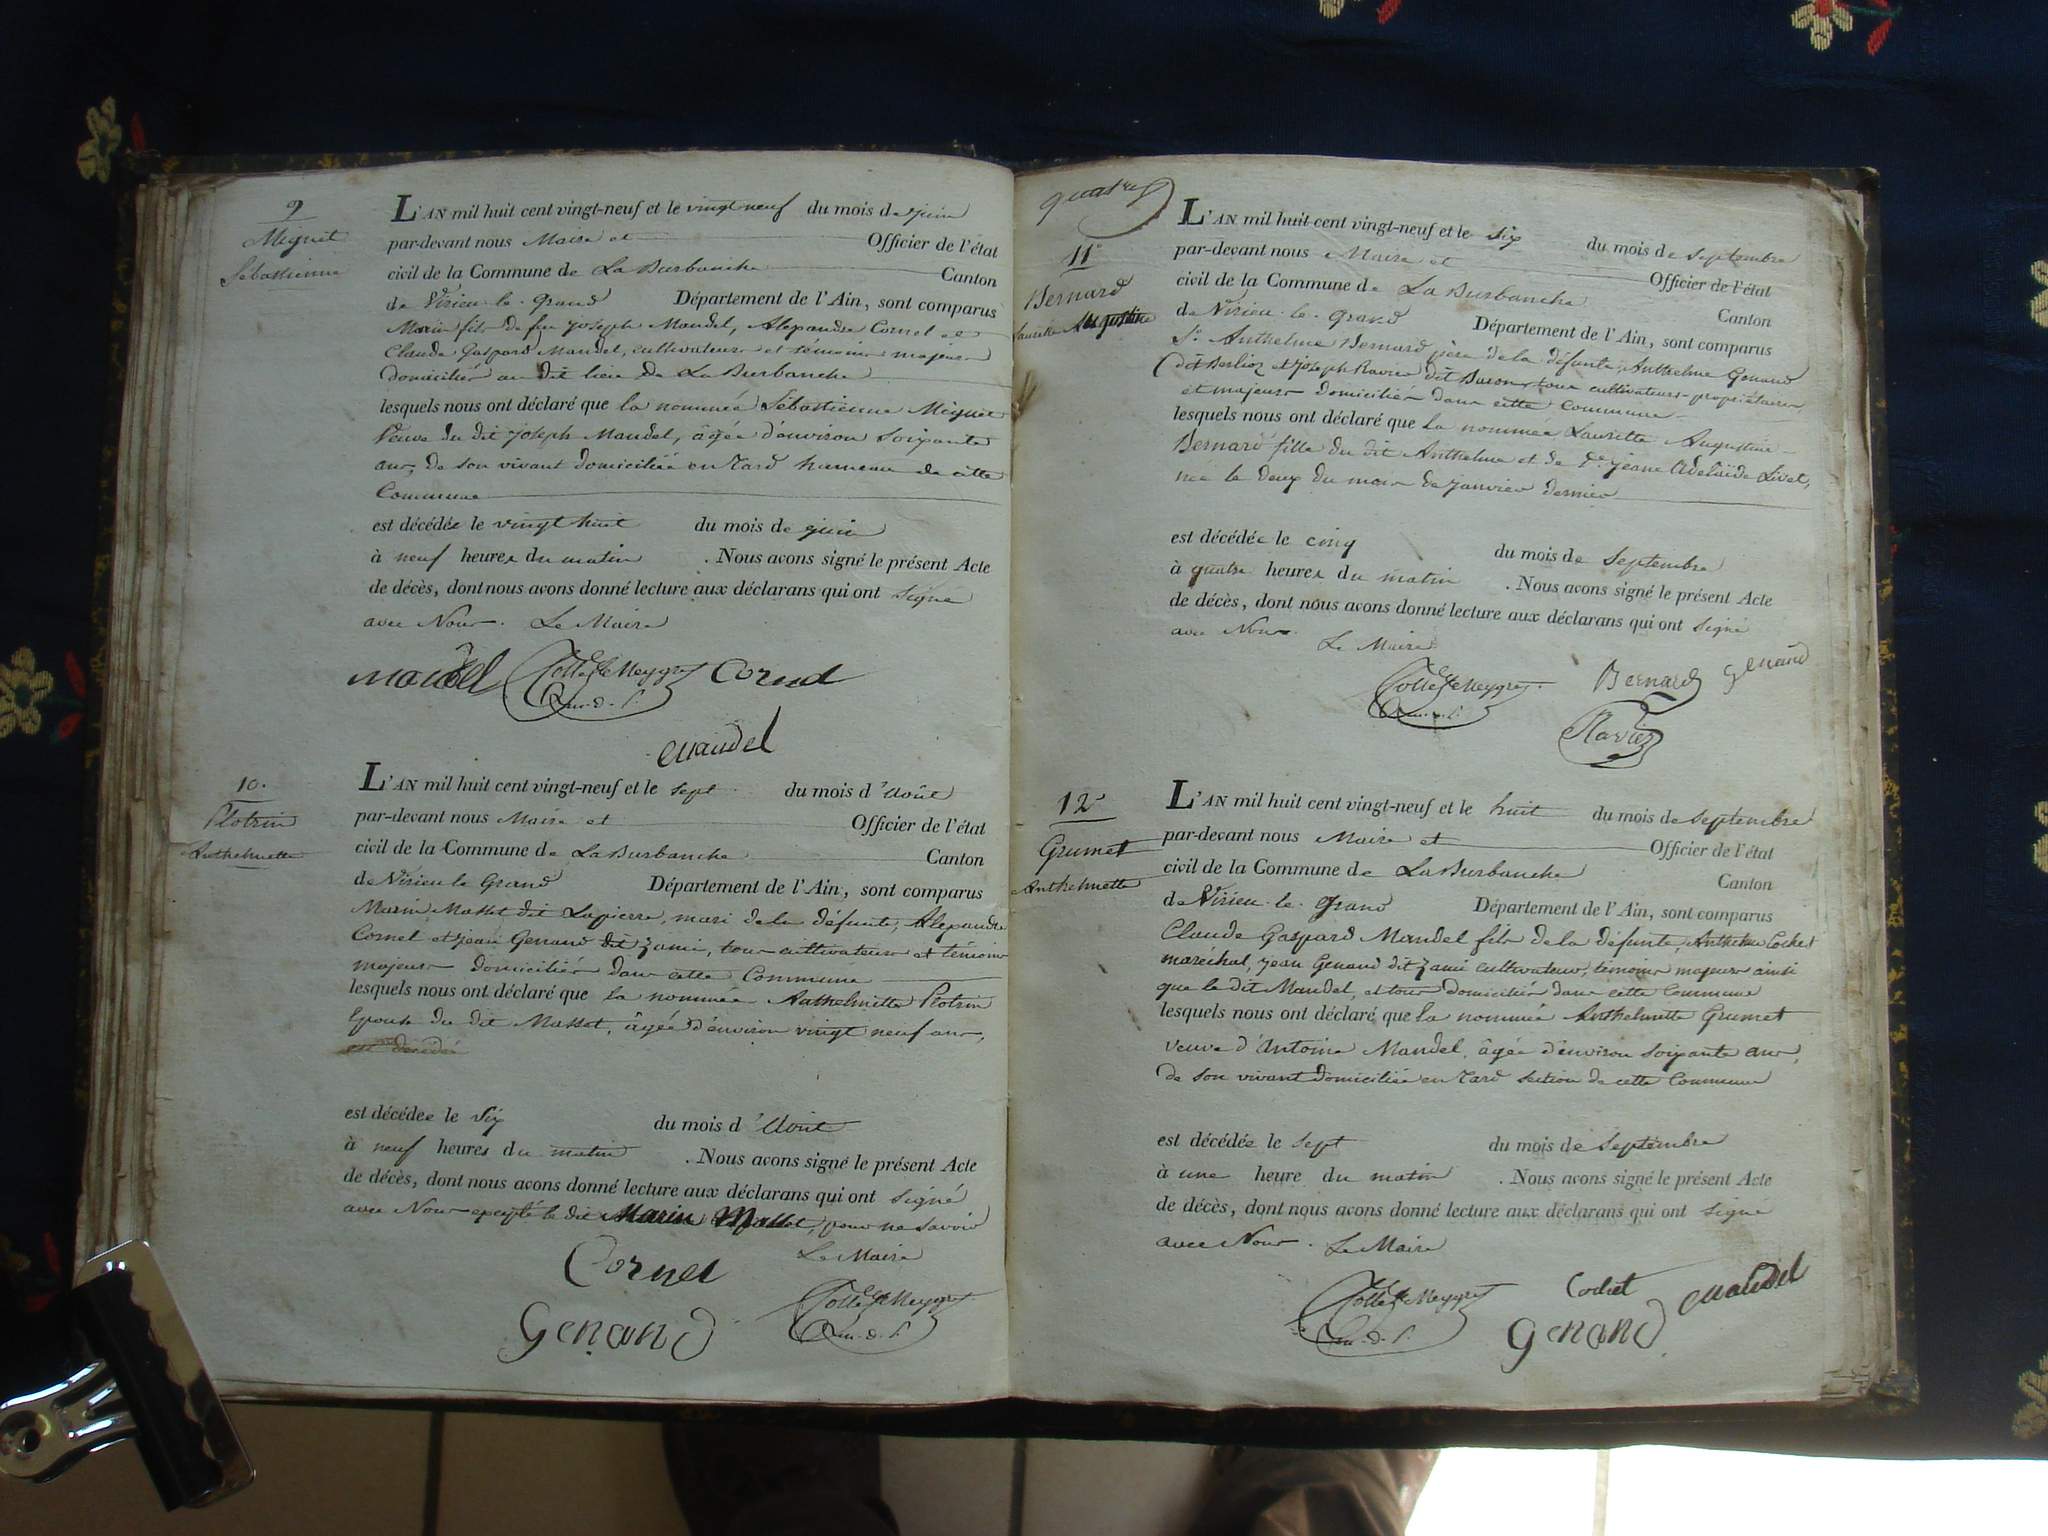 9
Miguet
Sébastienne
L'AN mil huit cent vingt-neuf et le vingt neuf du mois de juin
par-devant nous Maire et Officier de l'état
civil de la Commune de La Burbanche Canton
de Virieu-le-grand Département de l'Ain, sont comparus
Marin fils de feu joseph Mandel, Alexandre Cornel et
Claude Gaspard Mandel, cultivateurs et témoins majeurs
domiciliés au dit lieu de La Burbanche
lesquels nous ont déclaré que la nommée Sébastienne Miguet
Veuve du dit joseph Mandel, âgée d'environ soixante
ans, de son vivant domiciliée en Tard hameau de cette
Commune
est décédée le vingt huit du mois de juin
à neuf heures du matin . Nous avons signé le présent Acte
de décès, dont nous avons donné lecture aux déclarans qui ont signé
avec Nous. Le Maire
Mandel Cornel
Mandel
10.
Plotrin
Anthelmette
L'AN mil huit cent vingt-neuf et le sept du mois d'Août
par-devant nous Maire et Officier de l'état
civil de la Commune de La Burbanche Canton
de Virieu le Grand Département de l'Ain, sont comparus
Marin Massot dit Lapierre, mari de la défunte, Alexandre
Cornel et jean Genand dit Zami, tous cultivateurs et témoins
majeurs domiciliés dans cette Commune
lesquels nous ont déclaré que la nommée Anthelmette Plotrin
Epouse du dit Massot, âgée d'environ vingt neuf ans,
est décédée le six du mois d'Août
à neuf heures du matin . Nous avons signé le présent Acte
de décès, dont nous avons donné lecture aux déclarans qui ont signé
avec Nous excepté le dit Marin Massot, pour ne savoir
Le Maire
Cornel
Genand
quatre
11e
Bernard
Laurette Augustine
L'AN mil huit cent vingt-neuf et le six du mois de septembre
par-devant nous Maire et Officier de l'état
civil de la Commune de La Burbanche Canton
de Virieu-le-grand Département de l'Ain, sont comparus
Sr. Anthelme Bernard père de la défunte, Anthelme Genand
dit Berlioz et joseph Ravier dit Baron tous cultivateurs-propriétaires
et majeurs domiciliés dans cette commune
lesquels nous ont déclaré que la nommée Laurette Augustine
Bernard fille du dit Anthelme et de De. jeane Adelaïde Livet,
née le deux du mois de janvier dernier
est décédée le cinq du mois de septembre
à quatre heures du matin . Nous avons signé le présent Acte
de décès, dont nous avons donné lecture aux déclarans qui ont signé
avec Nous. Le Maire
Bernard Genand
Ravier
12e
Grumet
Anthelmette
L'AN mil huit cent vingt-neuf et le huit du mois de septembre
par-devant nous Maire et Officier de l'état
civil de la Commune de La Burbanche Canton
de Virieu-le-grand Département de l'Ain, sont comparus
Claude Gaspard Mandel fils de la défunte, Anthelme Cochet
maréchal, jean Genand dit Zami cultivateur, témoins majeurs ainsi
que le dit Mandel, et tous domiciliés dans cette Commune
lesquels nous ont déclaré que la nommée Anthelmette Grumet
veuve d'Antoine Mandel, âgée d'environ soixante ans,
de son vivant domiciliée en Tard section de cette Commune
est décédée le sept du mois de septembre
à une heure du matin . Nous avons signé le présent Acte
de décès, dont nous avons donné lecture aux déclarans qui ont signé
avec Nous. Le Maire
Cochet Mandel
Genand